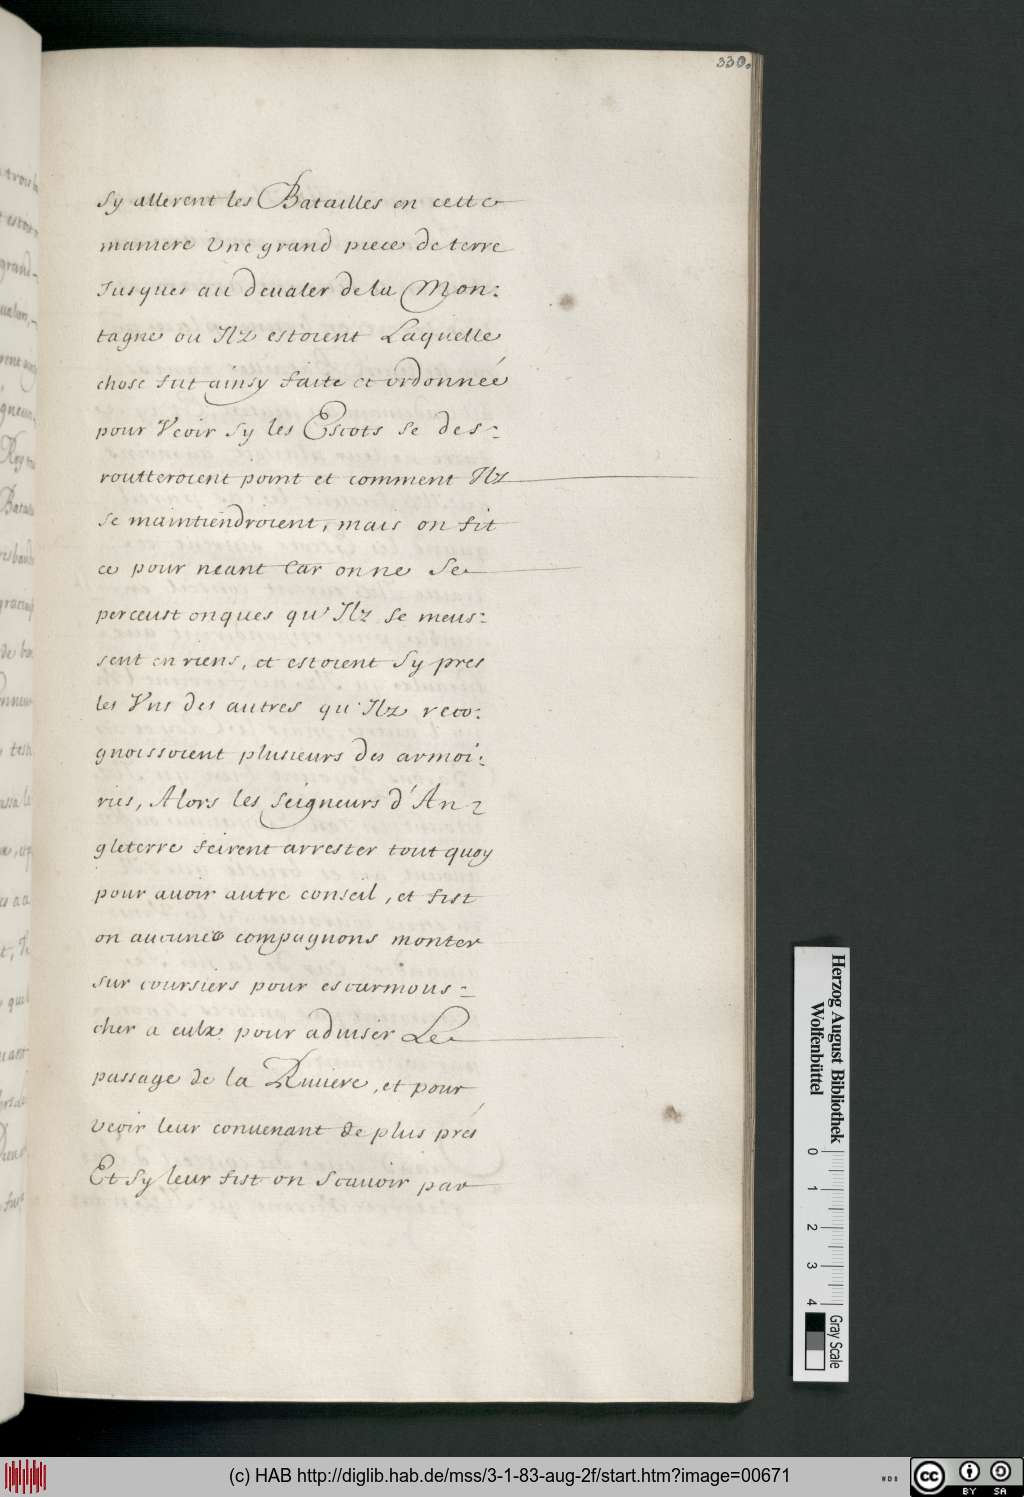 330.
Sy allerent les Batailles en cette
maniere Une grand piece de terre
Jusques au deualer de la Mon:
tagne ou Ilz estoient Laquelle
chose fut ainsy faite et ordonnée
pour Veoir sy les Escots se des:
routteroient point et comment Ilz
se maintiendroient, mais on fit
ce pour neant Car on ne Se
perceust onques qu'Ilz se meus:
sent en riens, et estoient Sy pres
les Vns des autres qu'Ilz reco:
gnoissoient plusieurs des armoi:
ries, Alors les Seigneurs d'An:
gleterre feirent arrester tout quoy
pour auoir autre conseil, et fist
on aucunes compagnons monter
sur coursiers pour escarmous:
cher a eulx pour aduiser Le
passage de la Riuiere, et pour
veoir leur conuenant de plus prés
Et Sy leur fist on Scauoir par
Herzog August Bibliothek
Wolfenbüttel
0 1 2 3 4
Gray Scale
(c) HAB http://diglib.hab.de/mss/3-1-83-aug-2f/start.htm?image=00671
WDB
cc
BY SA